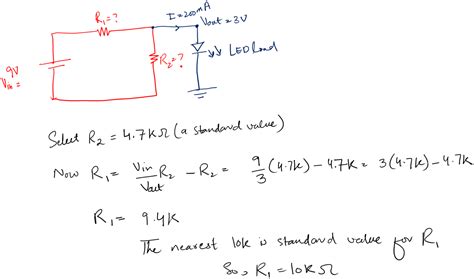 R₁=?
I=200mA
Vout=3V
9V
Vin=
R₂=?
LED Load
Select R₂ = 4.7KΩ (a standard value)
Now R₁ = Vin/Vout R₂ - R₂ = 9/3 (4.7K) - 4.7K = 3(4.7K) - 4.7K
R₁ = 9.4K
The nearest 10K is standard value for R₁
So, R₁ = 10KΩ